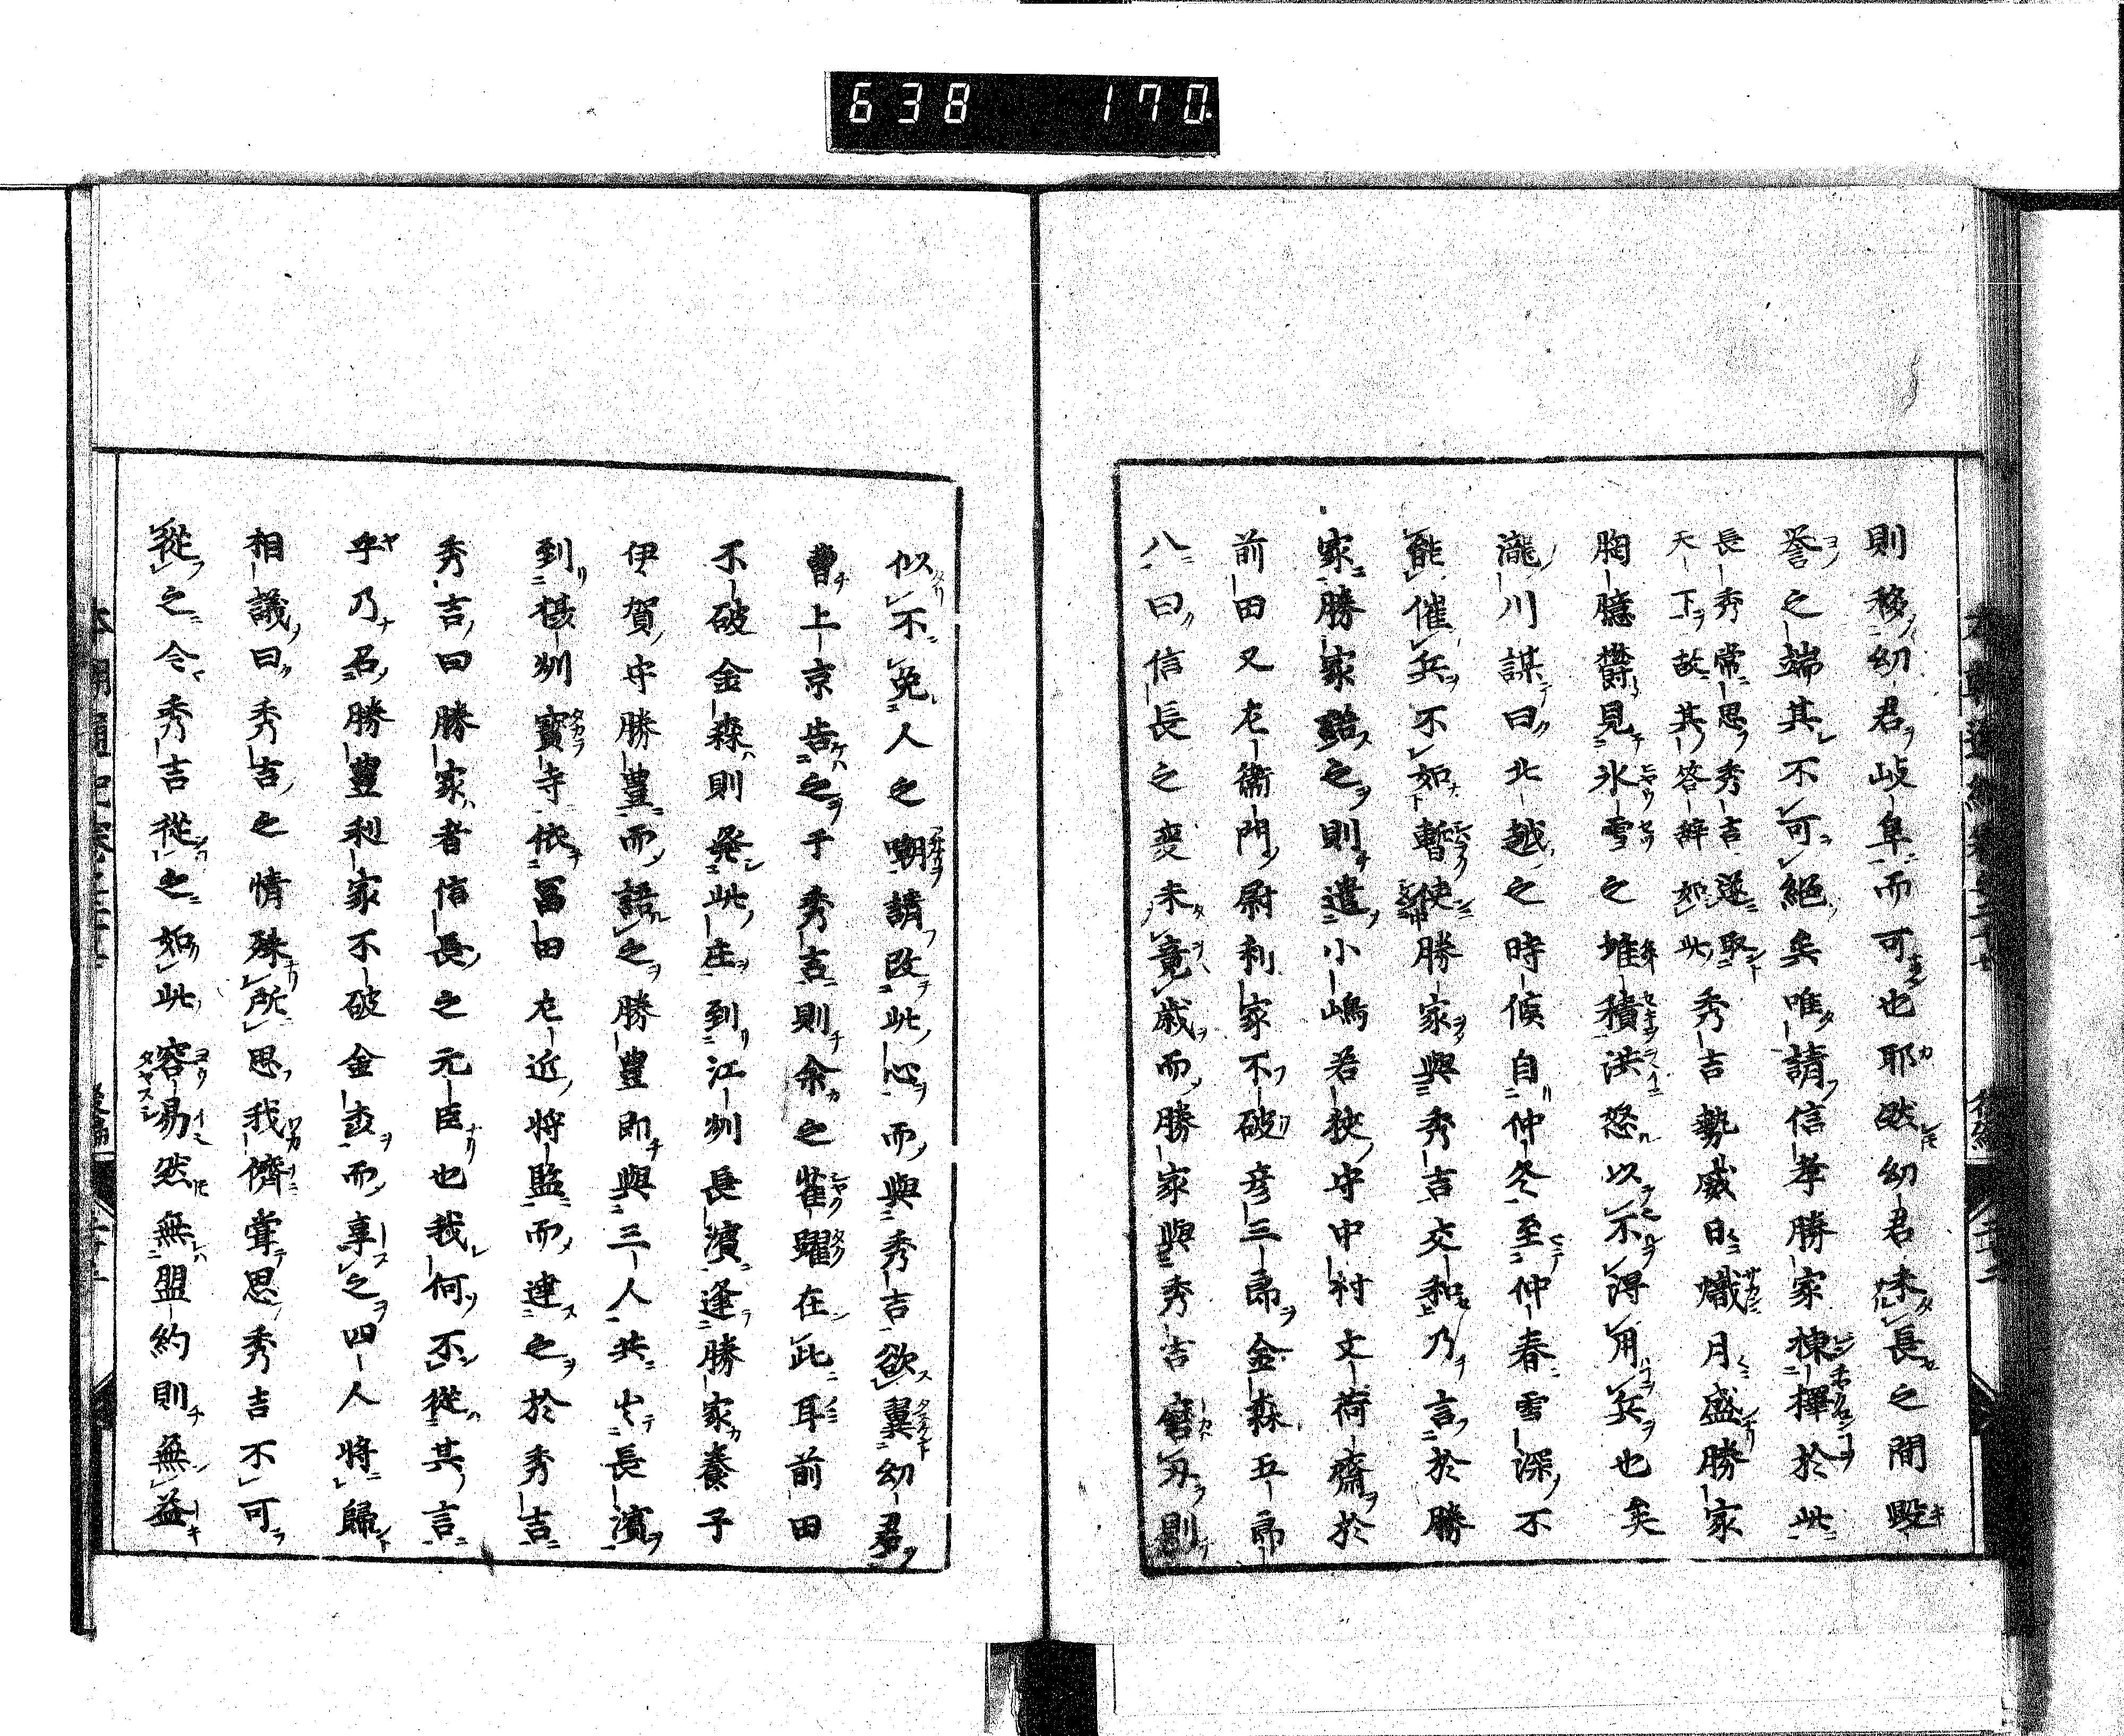 638 170.
則移幼君岐阜而可也耶然幼君未長之間毀
誉之端其不可絕矣唯請信孝勝家棟擇於此
長秀常思秀吉遂取
天下故其答辞如此
秀吉勢威日熾月盛勝家
胸臆欝見氷雪之堆積洪怒以不得用兵也矣
瀧川謀曰北越之時候自仲冬至仲春雪深不
能催兵不如暫使勝家與秀吉交和乃言於勝
家勝家諾之則遣小嶋若狹守中村文荷齋於
前田又左衛門尉利家不破彦三郎金森五郎
八曰信長之喪未竟歲而勝家與秀吉
則
似不免人之嘲請改此心而與秀吉欲翼幼君
曹上京告之于秀吉則余之雀躍在此耳前田
不破金森則発此庄到江州長濱逢勝家養子
伊賀守勝豊而語之勝豊即與三人共出長濱
到摂州寳寺依冨田左近將監而達之於秀吉
秀吉曰勝家者信長之元臣也我何不從其言
乎乃召勝豊利家不破金森而享之四人將歸
相議曰秀吉之情殊所思我儕嘗思秀吉不可
從之今秀吉從之如此容易然無盟約則無益